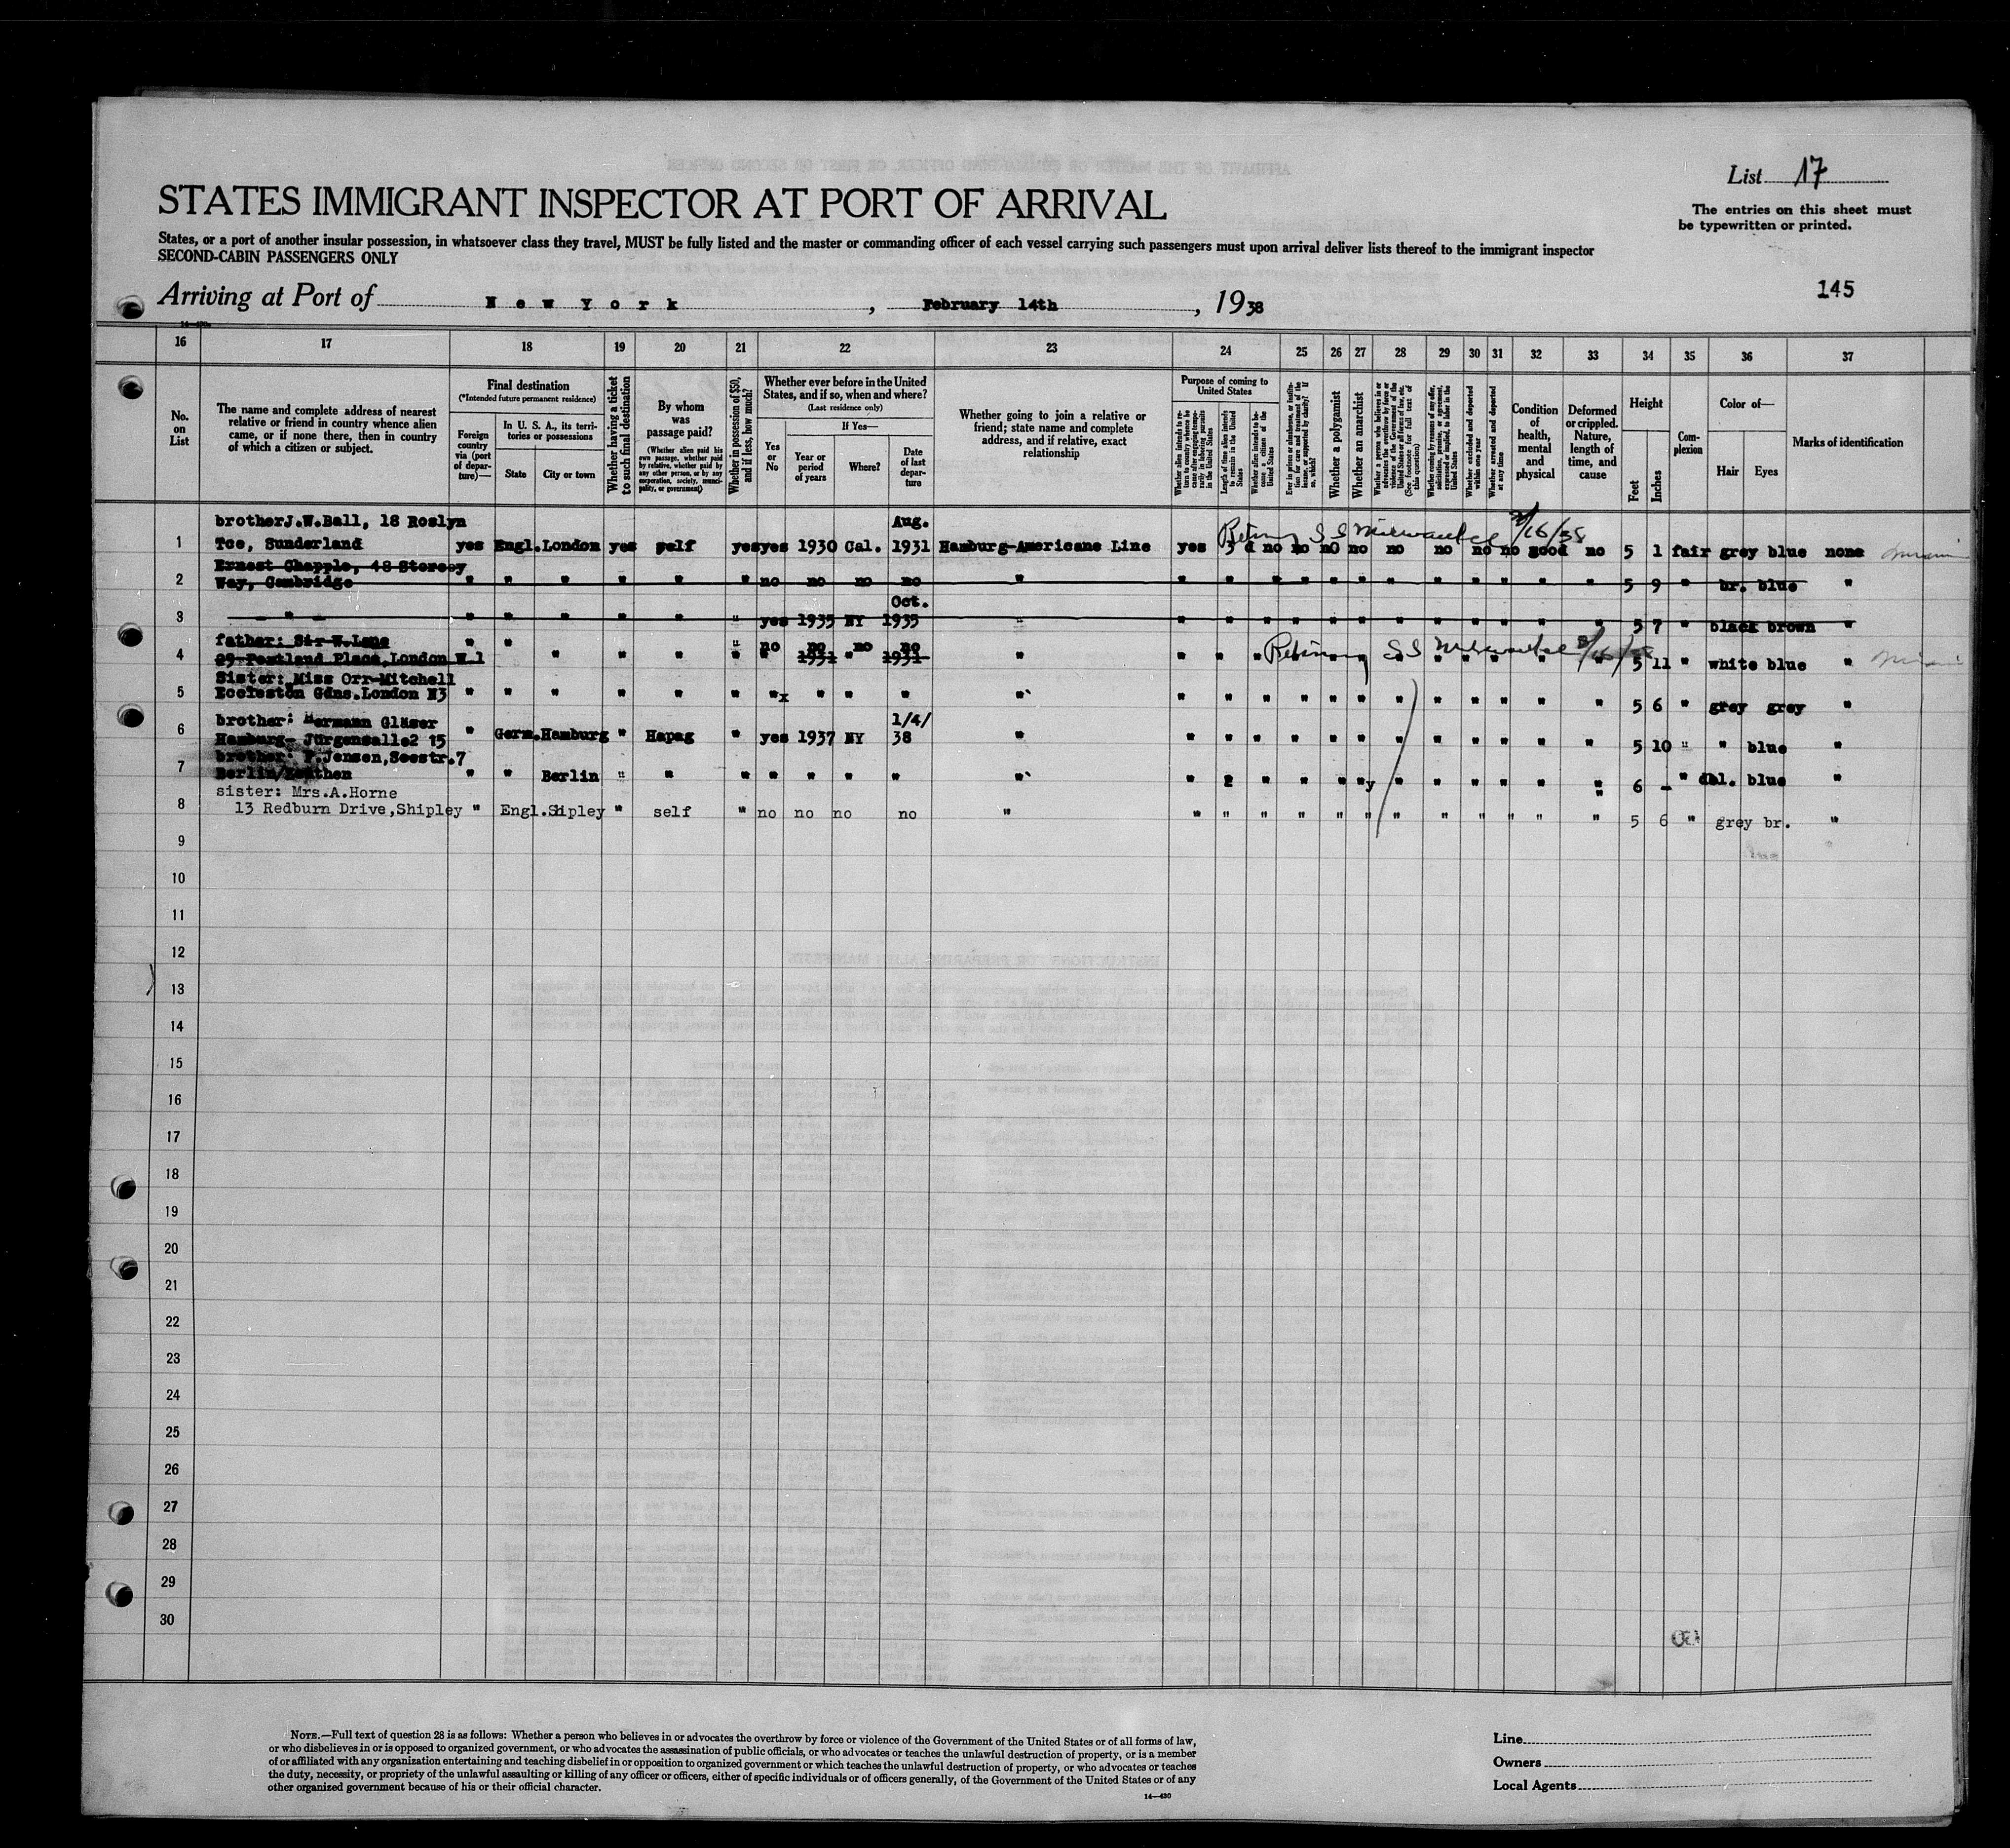 List 17
STATES IMMIGRANT INSPECTOR AT PORT OF ARRIVAL
The entries on this sheet must
be typewritten or printed.
States, or a port of another insular possession, in whatsoever class they travel, MUST be fully listed and the master or commanding officer of each vessel carrying such passengers must upon arrival deliver lists thereof to the immigrant inspector
SECOND-CABIN PASSENGERS ONLY
145
Arriving at Port of New York, February 14th, 1938
16 17 18 19 20 21 22 23 24 25 26 27 28 29 30 31 32 33 34 35 36 37
No. on List
The name and complete address of nearest relative or friend in country whence alien came, or if none there, then in country of which a citizen or subject.
Final destination
(*Intended future permanent residence)
Foreign country via (port of departure)—
In U. S. A., its territories or possessions
State
City or town
Whether having a ticket to such final destination
By whom was passage paid?
(Whether alien paid his own passage, whether paid by relative, whether paid by any other person, or by any corporation, society, municipality, or government)
Whether in possession of $50, and if less, how much?
Whether ever before in the United States, and if so, when and where?
(Last residence only)
Yes or No
If Yes—
Year or period of years
Where?
Date of last departure
Whether going to join a relative or friend; state name and complete address, and if relative, exact relationship
Purpose of coming to United States
Whether a polygamist
Whether an anarchist
Condition of health, mental and physical
Deformed or crippled. Nature, length of time, and cause
Height
Feet
Inches
Complexion
Color of—
Hair Eyes
Marks of identification
brother J.W.Ball, 18 Roslyn Aug. Returning SS Milwaukee 2/16/38
1 Tce, Sunderland yes Engl. London yes self yes yes 1930 Cal. 1931 Hamburg-Americane Line yes 3 d no no no no no no no no good no 5 1 fair grey blue none
Ernest Chapple, 48 Storey
2 Way, Cambridge " " " " " " no no no no " " " " " " " " " " " " " 5 9 " br. blue "
Oct.
3 " " " " " " " yes 1935 NY 1935 " " " " " " " " " " " " " 5 7 " black brown "
father: Sir W.Lane " " " no no no no Returning SS Milwaukee 2/16/38
4 29 Portland Place, London W.1 " " " " 1931 " 1931 " " " " " " " " " " " " 5 11 " white blue "
Sister: Miss Orr-Mitchell
5 Eccleston Gdns. London N3 " " " " " " "x " " " " " " " " " " " " " " " " " 5 6 " grey grey "
brother: Hermann Gläser 1/4/
6 Hamburg- Jürgensallee 15 " Germ. Hamburg " Hapag " yes 1937 NY 38 " " " " " " " " " " " " " 5 10 " " blue "
brother: P.Jensen, Seestr.7
7 " " Berlin " " " " " " " " " 2 " " " " " " " " " " 6 - " dbl. blue "
sister: Mrs.A.Horne
8 13 Redburn Drive, Shipley " Engl. Sipley " self " no no no no " " " " " " " " " " " " " 5 6 " grey br. "
9
10
11
12
13
14
15
16
17
18
19
20
21
22
23
24
25
26
27
28
29
30
NOTE.—Full text of question 28 is as follows: Whether a person who believes in or advocates the overthrow by force or violence of the Government of the United States or of all forms of law,
or who disbelieves in or is opposed to organized government, or who advocates the assassination of public officials, or who advocates or teaches the unlawful destruction of property, or is a member
of or affiliated with any organization entertaining and teaching disbelief in or opposition to organized government or which teaches the unlawful destruction of property, or who advocates or teaches
the duty, necessity, or propriety of the unlawful assaulting or killing of any officer or officers, either of specific individuals or of officers generally, of the Government of the United States or of any
other organized government because of his or their official character.
14—430
Line
Owners
Local Agents